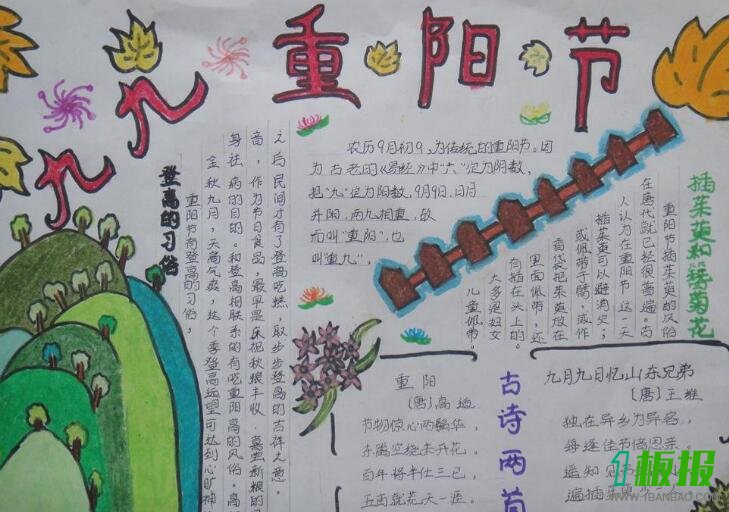 九九重阳节
登高的习俗
重阳节有登高的习俗，
金秋九月，天高气爽，这个季登高远望可达到心旷神
身祛病的目的。和登高相联系的有吃重阳高的风俗。高
音，作为节日食品，最早是庆祝秋粮丰收、喜尝新粮的
之后民间才有了登高吃糕，取步步登高的吉祥之意。
农历9月初9，为传统的重阳节。因
为古老的《易经》中"六"定为阴数，
把"九"定为阳数，9月9日，日月
并阳，两九相重，故
而叫"重阳"，也
叫"重九"。
插茱萸和簪菊花
重阳节插茱萸的风俗
在唐代就已经很普遍。古
人认为在重阳节这一天
插茱萸可以避消灾；
或佩带于臂，或作
香袋把茱萸放在
里面佩带，还
有插在头上的。
大多是妇女
儿童佩带。
重阳
〔唐〕高适
节物惊心两鬓华，
东篱空绕未开花。
百年将半仕三已，
五亩就荒天一涯。
古诗两首
九月九日忆山东兄弟
〔唐〕王维
独在异乡为异客，
每逢佳节倍思亲。
遥知兄
遍插茱萸
1板报
WWW.1BANBAO.COM